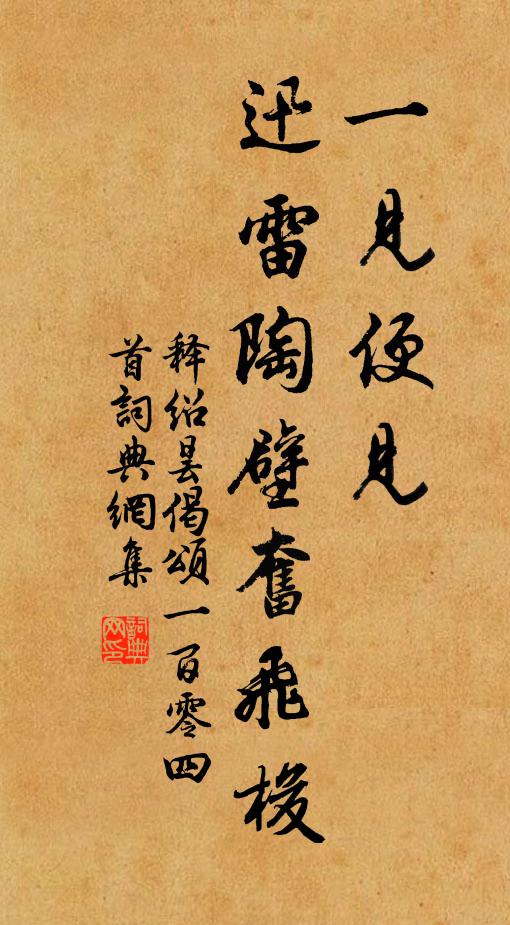 一見便見
迅雷陶壁奮飛梭
释紹曇偈頌一百零四
首詞典網集
詞典網印